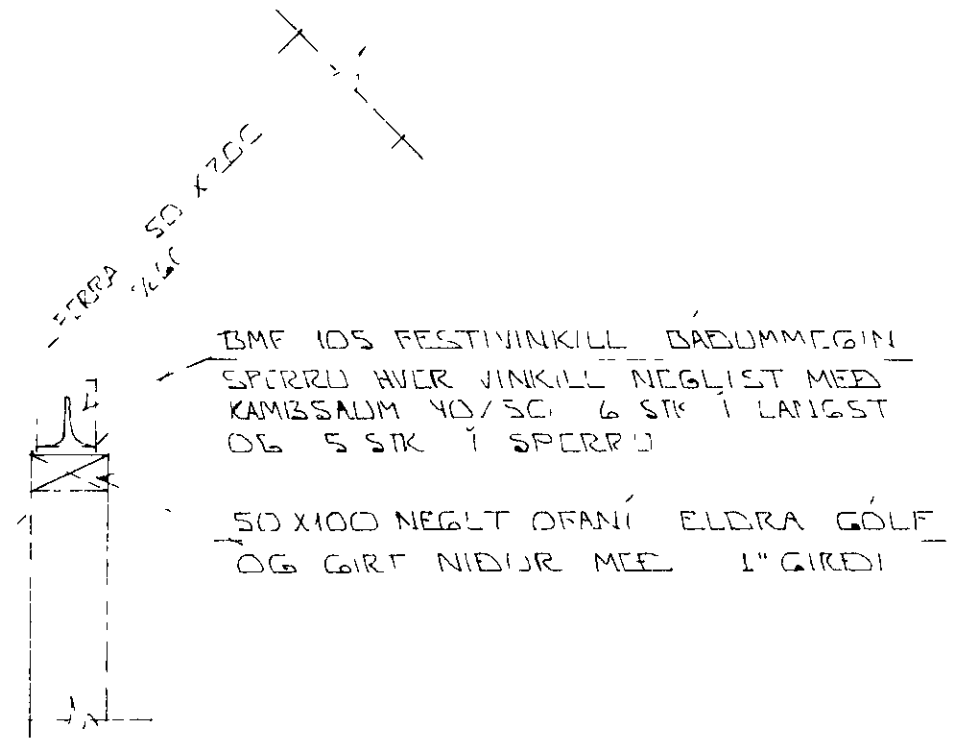 SPERRA 50 X 200
BMF 105 FESTIVINKILL BÁÐUMMEGIN
SPERRU HVER VINKILL NEGLIST MEÐ
KAMBSAUM 40/50, 6 STK Í LANGST
OG 5 STK Í SPERRU
50 X100 NEGLT OFANÍ ELDRA GÓLF
OG GIRT NIÐUR MEÐ 1" GIRÐI